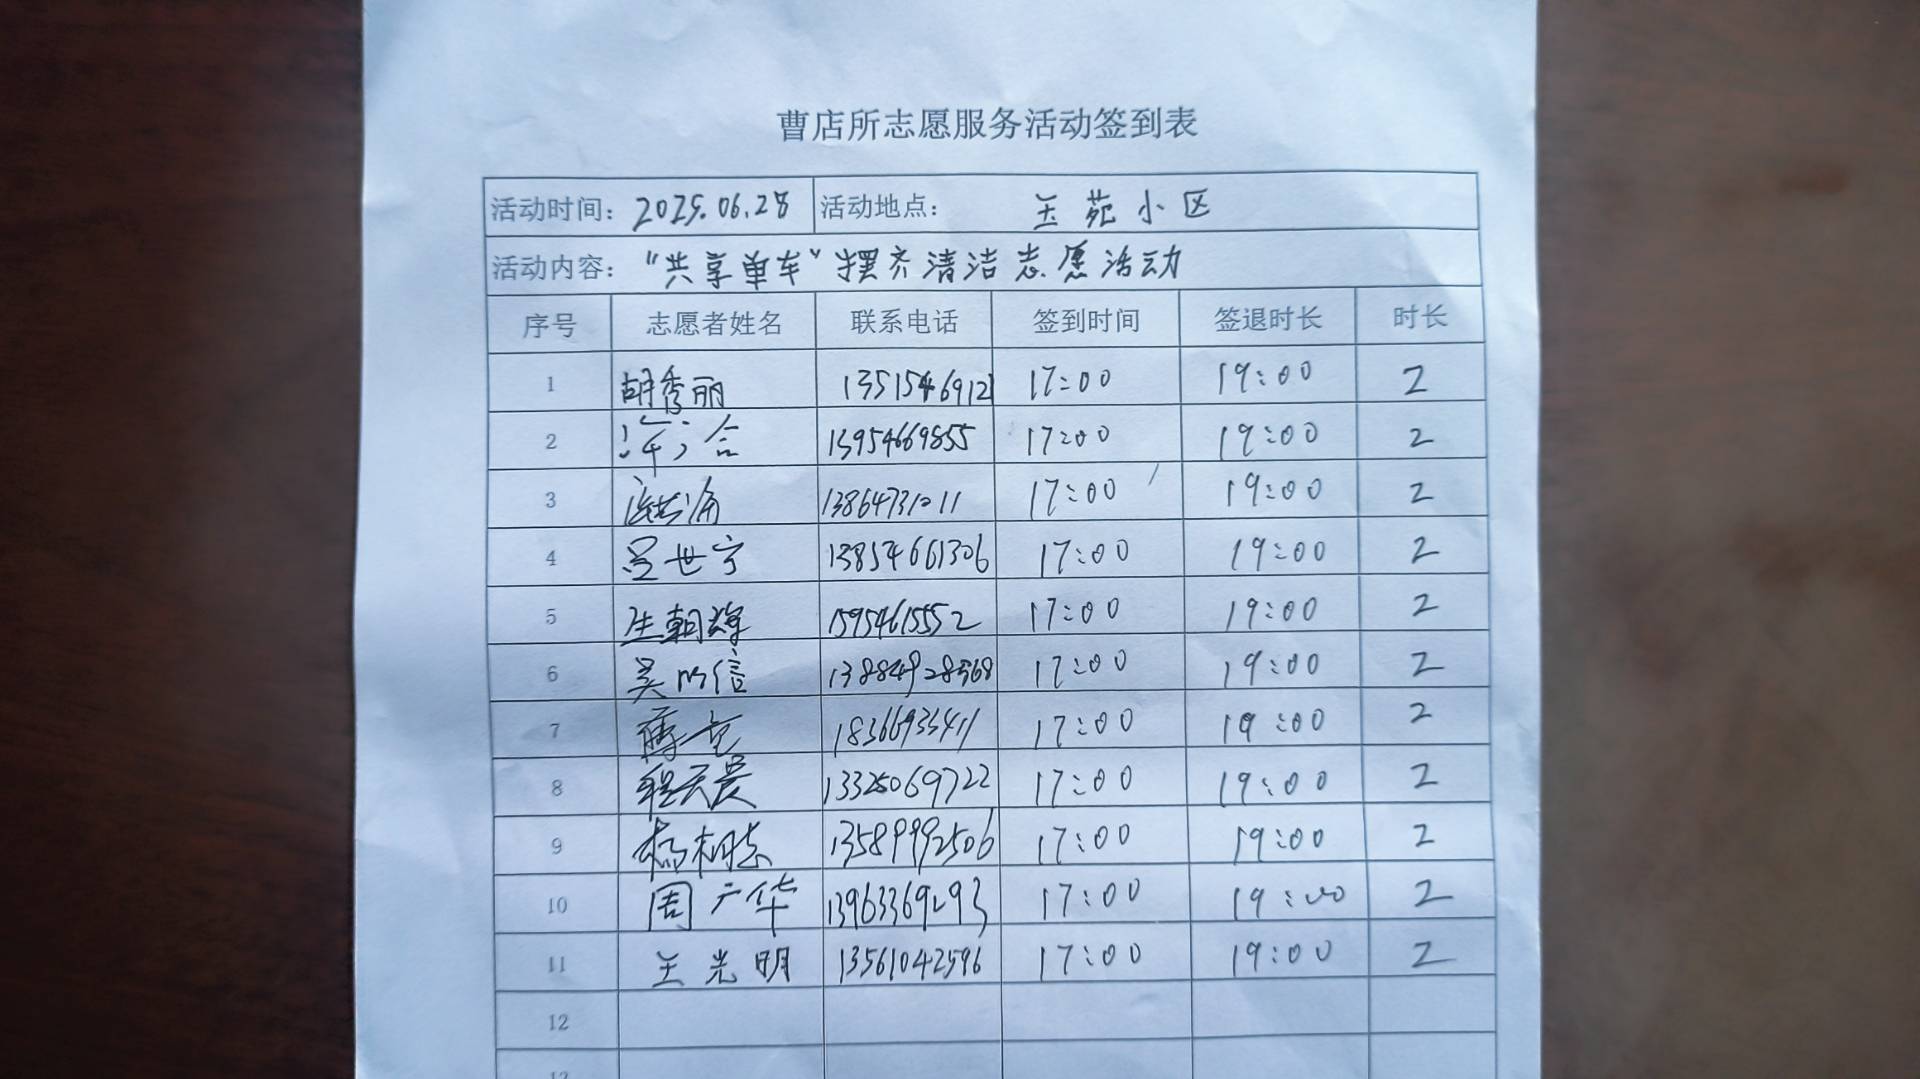 曹店所志愿服务活动签到表
活动时间: 2025.06.28 活动地点: 玉苑小区
活动内容: “共享单车”摆齐清洁志愿活动
序号 志愿者姓名 联系电话 签到时间 签退时长 时长
1 胡秀丽 13515469121 17:00 19:00 2
2 13954669855 17:00 19:00 2
3 13864731211 17:00 19:00 2
4 世宁 13854661306 17:00 19:00 2
5 生朝辉 15954615552 17:00 19:00 2
6 吴明信 13884928568 17:00 19:00 2
7 18366933411 17:00 19:00 2
8 程天晨 13325069722 17:00 19:00 2
9 杨树志 13589992506 17:00 19:00 2
10 周广华 13963369293 17:00 19:00 2
11 王光明 13561042596 17:00 19:00 2
12